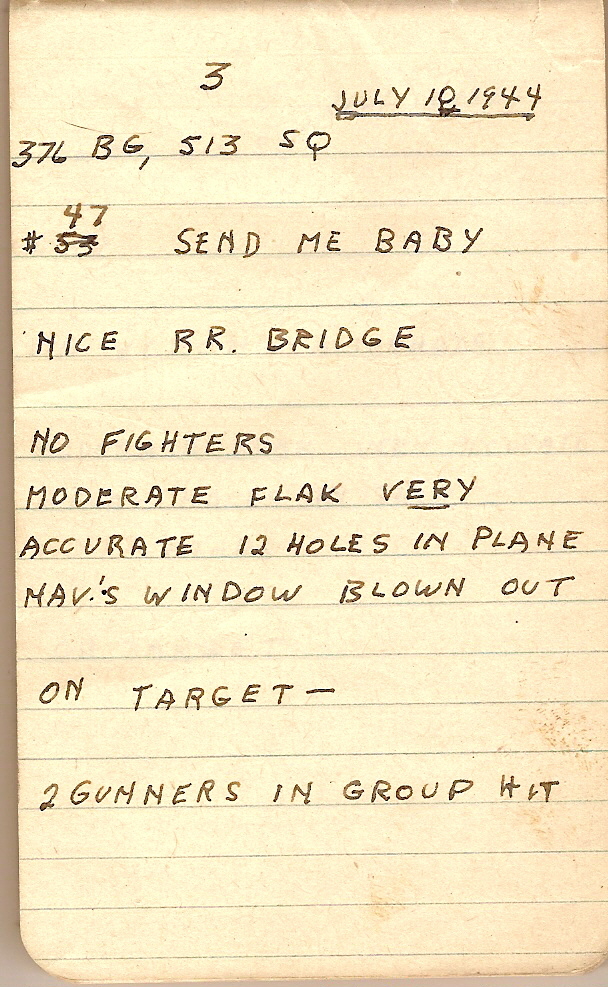 3
JULY 10 1944
376 BG, 513 SQ
47
# 53 SEND ME BABY
NICE RR. BRIDGE
NO FIGHTERS
MODERATE FLAK VERY
ACCURATE 12 HOLES IN PLANE
NAV.'S WINDOW BLOWN OUT
ON TARGET —
2 GUNNERS IN GROUP HIT